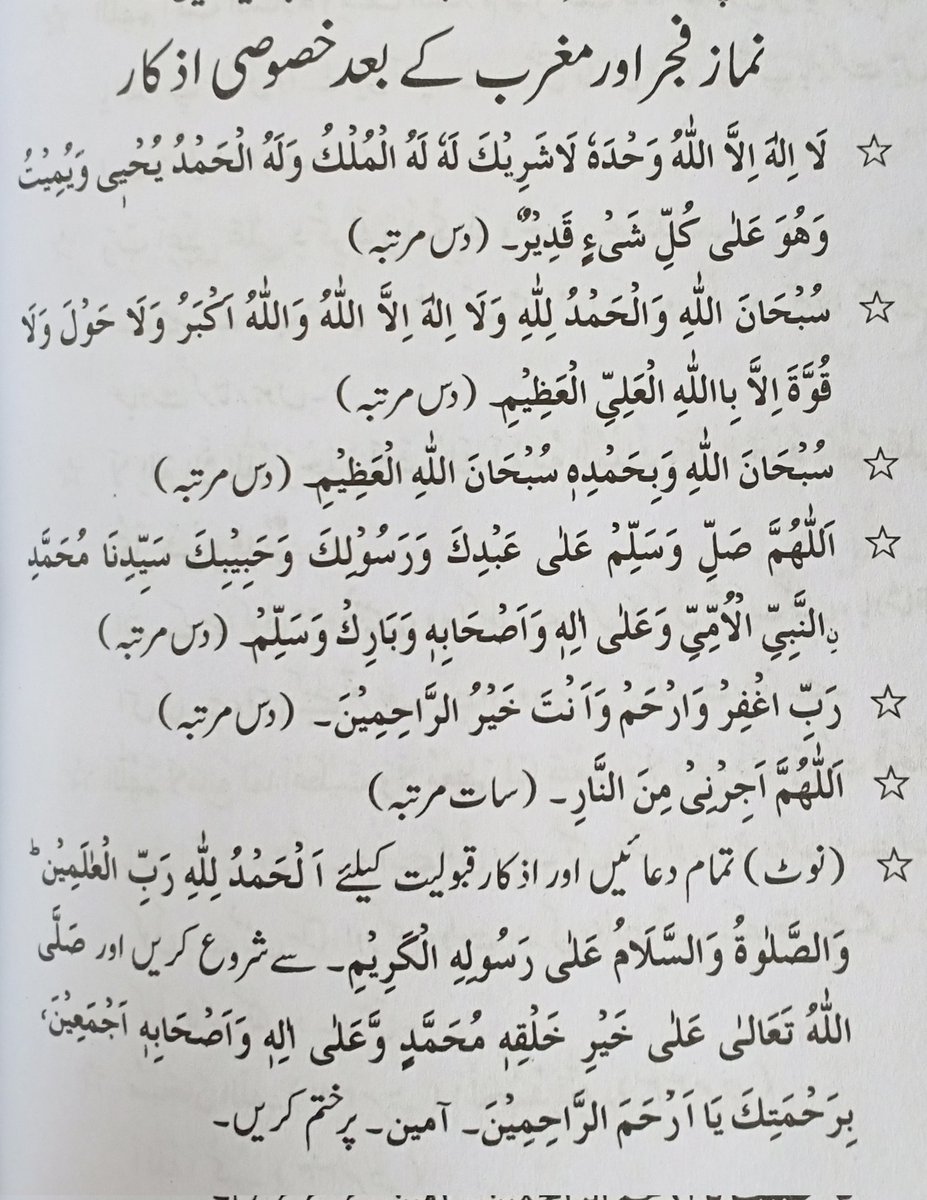 نماز فجر اور مغرب کے بعد خصوصی اذکار
☆ لَا اِلٰهَ اِلَّا اللّٰهُ وَحْدَهٗ لَاشَرِيْكَ لَهٗ لَهُ الْمُلْكُ وَلَهُ الْحَمْدُ يُحْيِىْ وَيُمِيْتُ
وَهُوَ عَلٰى كُلِّ شَىْءٍ قَدِيْرٌ۔ (دس مرتبہ)
☆ سُبْحَانَ اللّٰهِ وَالْحَمْدُ لِلّٰهِ وَلَا اِلٰهَ اِلَّا اللّٰهُ وَاللّٰهُ اَكْبَرُ وَلَا حَوْلَ وَلَا
قُوَّةَ اِلَّا بِااللّٰهِ الْعَلِيِّ الْعَظِيْمِ (دس مرتبہ)
☆ سُبْحَانَ اللّٰهِ وَبِحَمْدِهٖ سُبْحَانَ اللّٰهِ الْعَظِيْمِ (دس مرتبہ)
☆ اَللّٰهُمَّ صَلِّ وَسَلِّمْ عَلٰى عَبْدِكَ وَرَسُوْلِكَ وَحَبِيْبِكَ سَيِّدِنَا مُحَمَّدِ
نِالنَّبِيِّ الْاُمِّيِّ وَعَلٰى اٰلِهٖ وَاَصْحَابِهٖ وَبَارِكْ وَسَلِّمْ (دس مرتبہ)
☆ رَبِّ اغْفِرْ وَارْحَمْ وَاَنْتَ خَيْرُ الرَّاحِمِيْنَ۔ (دس مرتبہ)
☆ اَللّٰهُمَّ اَجِرْنِىْ مِنَ النَّارِ۔ (سات مرتبہ)
☆ (نوٹ) تمام دعائیں اور اذکار قبولیت کیلئے اَلْحَمْدُ لِلّٰهِ رَبِّ الْعٰلَمِيْنَ ؕ
وَالصَّلٰوةُ وَالسَّلَامُ عَلٰى رَسُوْلِهِ الْكَرِيْمِ۔ سے شروع کریں اور صَلَّى
اللّٰهُ تَعَالٰى عَلٰى خَيْرِ خَلْقِهٖ مُحَمَّدٍ وَّعَلٰى اٰلِهٖ وَاَصْحَابِهٖ اَجْمَعِيْنَ،
بِرَحْمَتِكَ يَا اَرْحَمَ الرَّاحِمِيْنَ۔ آمین۔ پر ختم کریں۔